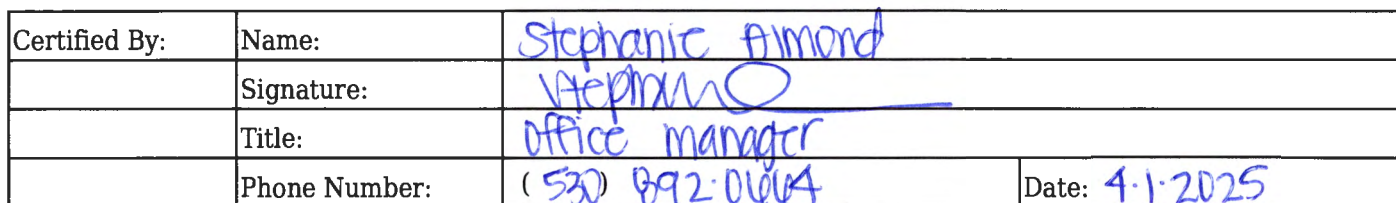 Certified By: Name: Stephanie Almond
Signature:
Title: office manager
Phone Number: (530) 892-0664 Date: 4.1.2025